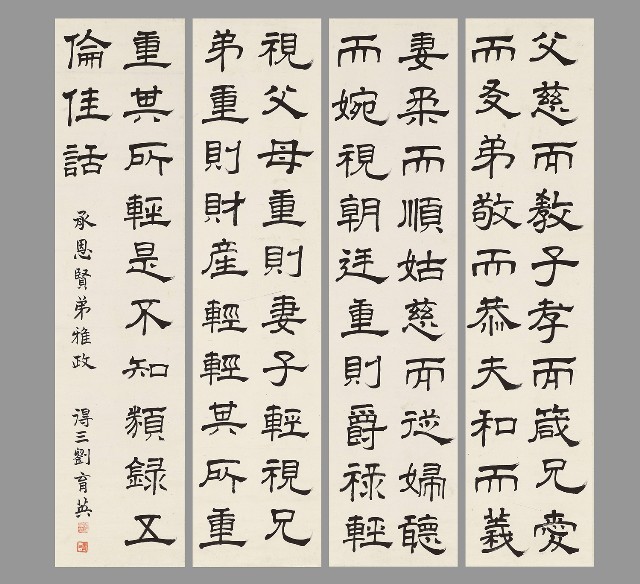 父慈而教子孝而箴兄愛
而友弟敬而恭夫和而義
妻柔而順姑慈而從婦聽
而婉視朝廷重則爵祿輕
視父母重則妻子輕視兄
弟重則財產輕輕其所重
重其所輕是不知類錄五
倫佳話
承恩賢弟雅政 得三劉育英